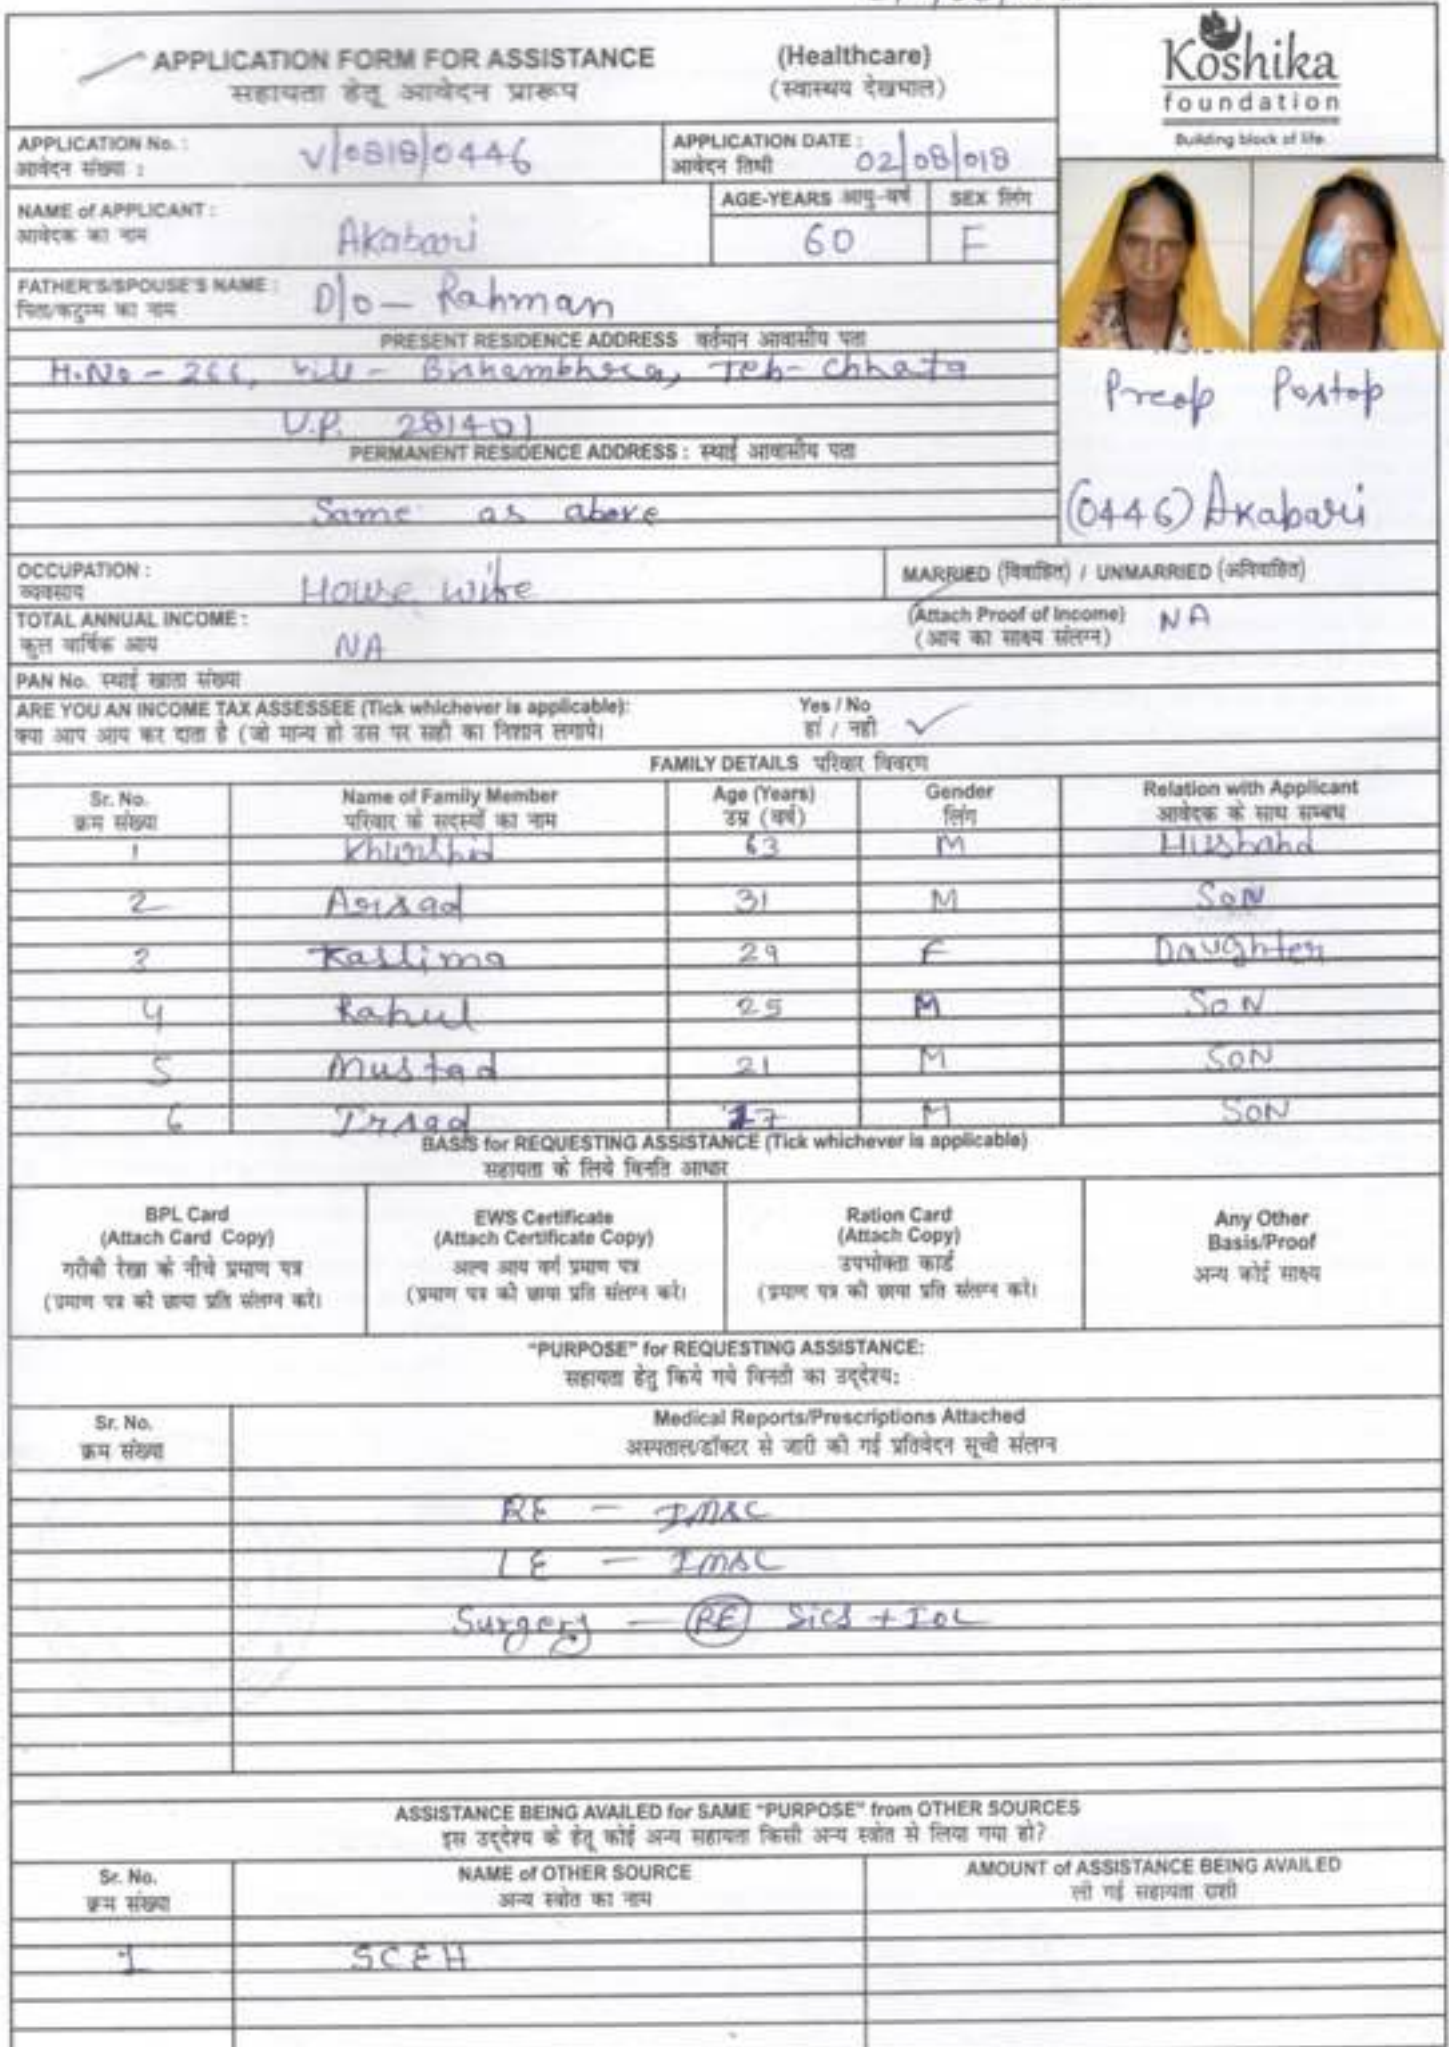 APPLICATION FORM FOR ASSISTANCE (Healthcare)
सहायता हेतू आवेदन प्रारूप (स्वास्थय देखभाल)
Koshika
foundation
Building block of life
APPLICATION No. :
आवेदन संख्या :
V/0818/0446
APPLICATION DATE :
आवेदन तिथी
02/08/018
NAME of APPLICANT :
आवेदक का नाम
Akabari
AGE-YEARS आयु-वर्ष
60
SEX लिंग
F
FATHER'S/SPOUSE'S NAME :
पिता/कटुम्ब का नाम
D/o - Rahman
PRESENT RESIDENCE ADDRESS वर्तमान आवासीय पता
H.No - 266, Vill - Bishambhra, Teh- Chhata
U.P. 281401
PERMANENT RESIDENCE ADDRESS : स्थाई आवासीय पता
Same as above
Preop Postop
(0446) Akabari
OCCUPATION :
व्यवसाय
House wife
MARRIED (विवाहित) / UNMARRIED (अविवाहित)
TOTAL ANNUAL INCOME :
कुल वार्षिक आय
NA
(Attach Proof of Income) NA
(आय का साक्ष्य संलग्न)
PAN No. स्थाई खाता संख्या
ARE YOU AN INCOME TAX ASSESSEE (Tick whichever is applicable): Yes / No
क्या आप आय कर दाता है (जो मान्य हो उस पर सही का निशान लगाये। हां / नही ✓
FAMILY DETAILS परिवार विवरण
Sr. No. Name of Family Member Age (Years) Gender Relation with Applicant
क्रम संख्या परिवार के सदस्यों का नाम उम्र (वर्ष) लिंग आवेदक के साथ सम्बध
1 Khurshid 63 M Husband
2 Arsad 31 M SON
3 Kallima 29 F Daughter
4 Rahul 25 M SON
5 Mustad 21 M SON
6 Irsad 17 M SON
BASIS for REQUESTING ASSISTANCE (Tick whichever is applicable)
सहायता के लिये विनति आधार
BPL Card
(Attach Card Copy)
गरीबी रेखा के नीचे प्रमाण पत्र
(प्रमाण पत्र की छाया प्रति संलग्न करे।
EWS Certificate
(Attach Certificate Copy)
अल्प आय वर्ग प्रमाण पत्र
(प्रमाण पत्र की छाया प्रति संलग्न करे।
Ration Card
(Attach Copy)
उपभोक्ता कार्ड
(प्रमाण पत्र की छाया प्रति संलग्न करे।
Any Other
Basis/Proof
अन्य कोई साक्ष्य
"PURPOSE" for REQUESTING ASSISTANCE:
सहायता हेतु किये गये विनती का उद्देश्य:
Sr. No. Medical Reports/Prescriptions Attached
क्रम संख्या अस्पताल/डॉक्टर से जारी की गई प्रतिवेदन सूची संलग्न
RE - IMSC
LE - IMSC
Surgery - RE SICS + IOL
ASSISTANCE BEING AVAILED for SAME "PURPOSE" from OTHER SOURCES
इस उद्देश्य के हेतू कोई अन्य सहायता किसी अन्य स्त्रोत से लिया गया हो?
Sr. No. NAME of OTHER SOURCE AMOUNT of ASSISTANCE BEING AVAILED
क्रम संख्या अन्य स्त्रोत का नाम ली गई सहायता राशी
1 SCEH